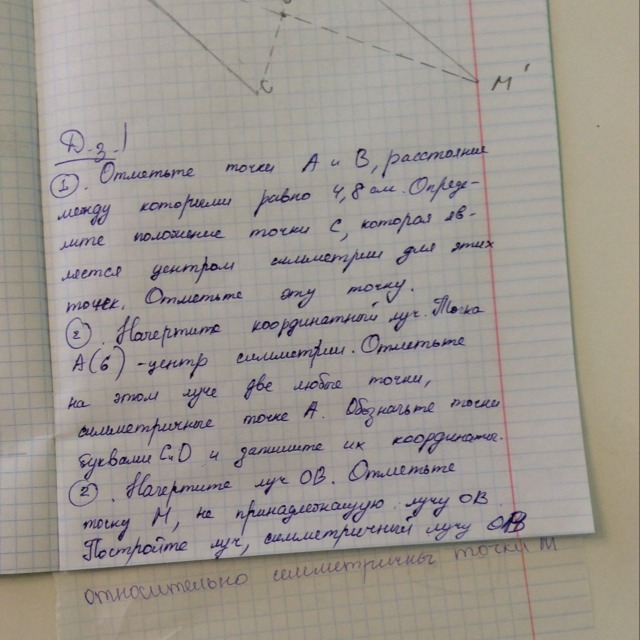 C
M'
Д.з.
1. Отметьте точки А и В, расстояние
между которыми равно 4,8 см. Опреде-
лите положение точки С, которая яв-
ляется центром симметрии для этих
точек. Отметьте эту точку.
2. Начертите координатный луч. Точка
А(6) - центр симметрии. Отметьте
на этом луче две любые точки,
симметричные точке А. Обозначьте точки
буквами С и D и запишите их координаты.
2. Начертите луч ОВ. Отметьте
точку М, не принадлежащую лучу ОВ.
Постройте луч, симметричный лучу ОВ
относительно симметричны точки М